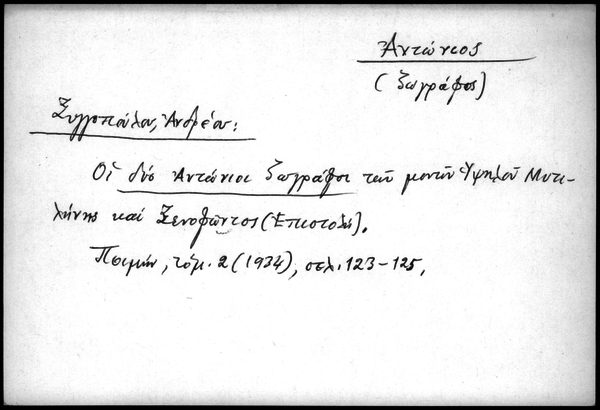 Ἀντώνιος
(ζωγράφος)
Ξυγγοπούλου, Ἀνδρέου:
Οἱ δύο Ἀντώνιοι ζωγράφοι τῶν μονῶν Ὑψηλοῦ Μυτι-
λήνης καὶ Ξενοφῶντος (Ἐπιστολή).
Ποιμήν, τόμ. 2 (1934), σελ. 123-125.